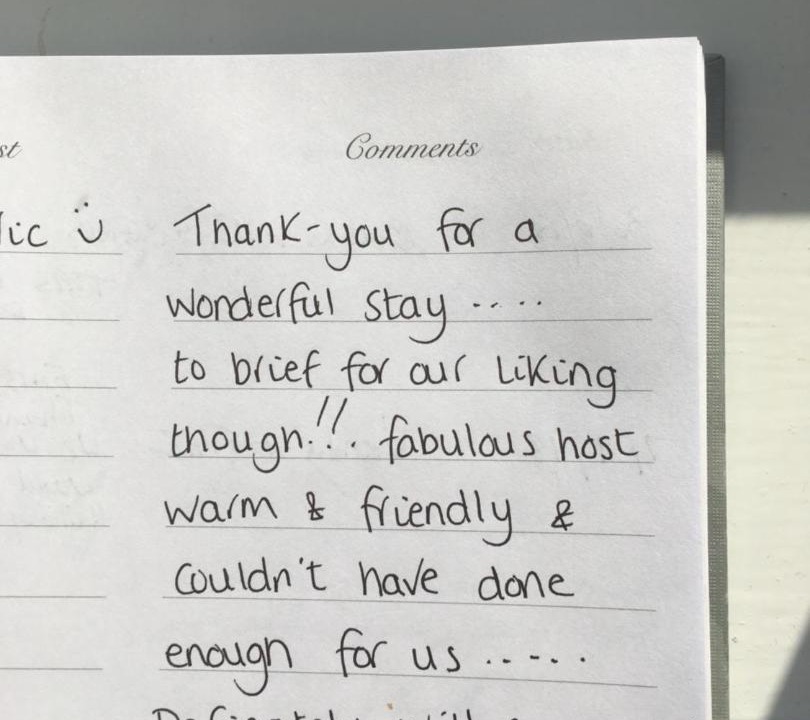 st
Comments
lic ü
Thank-you for a
wonderful stay .....
to brief for our liking
though!!. fabulous host
warm & friendly &
couldn't have done
enough for us .....